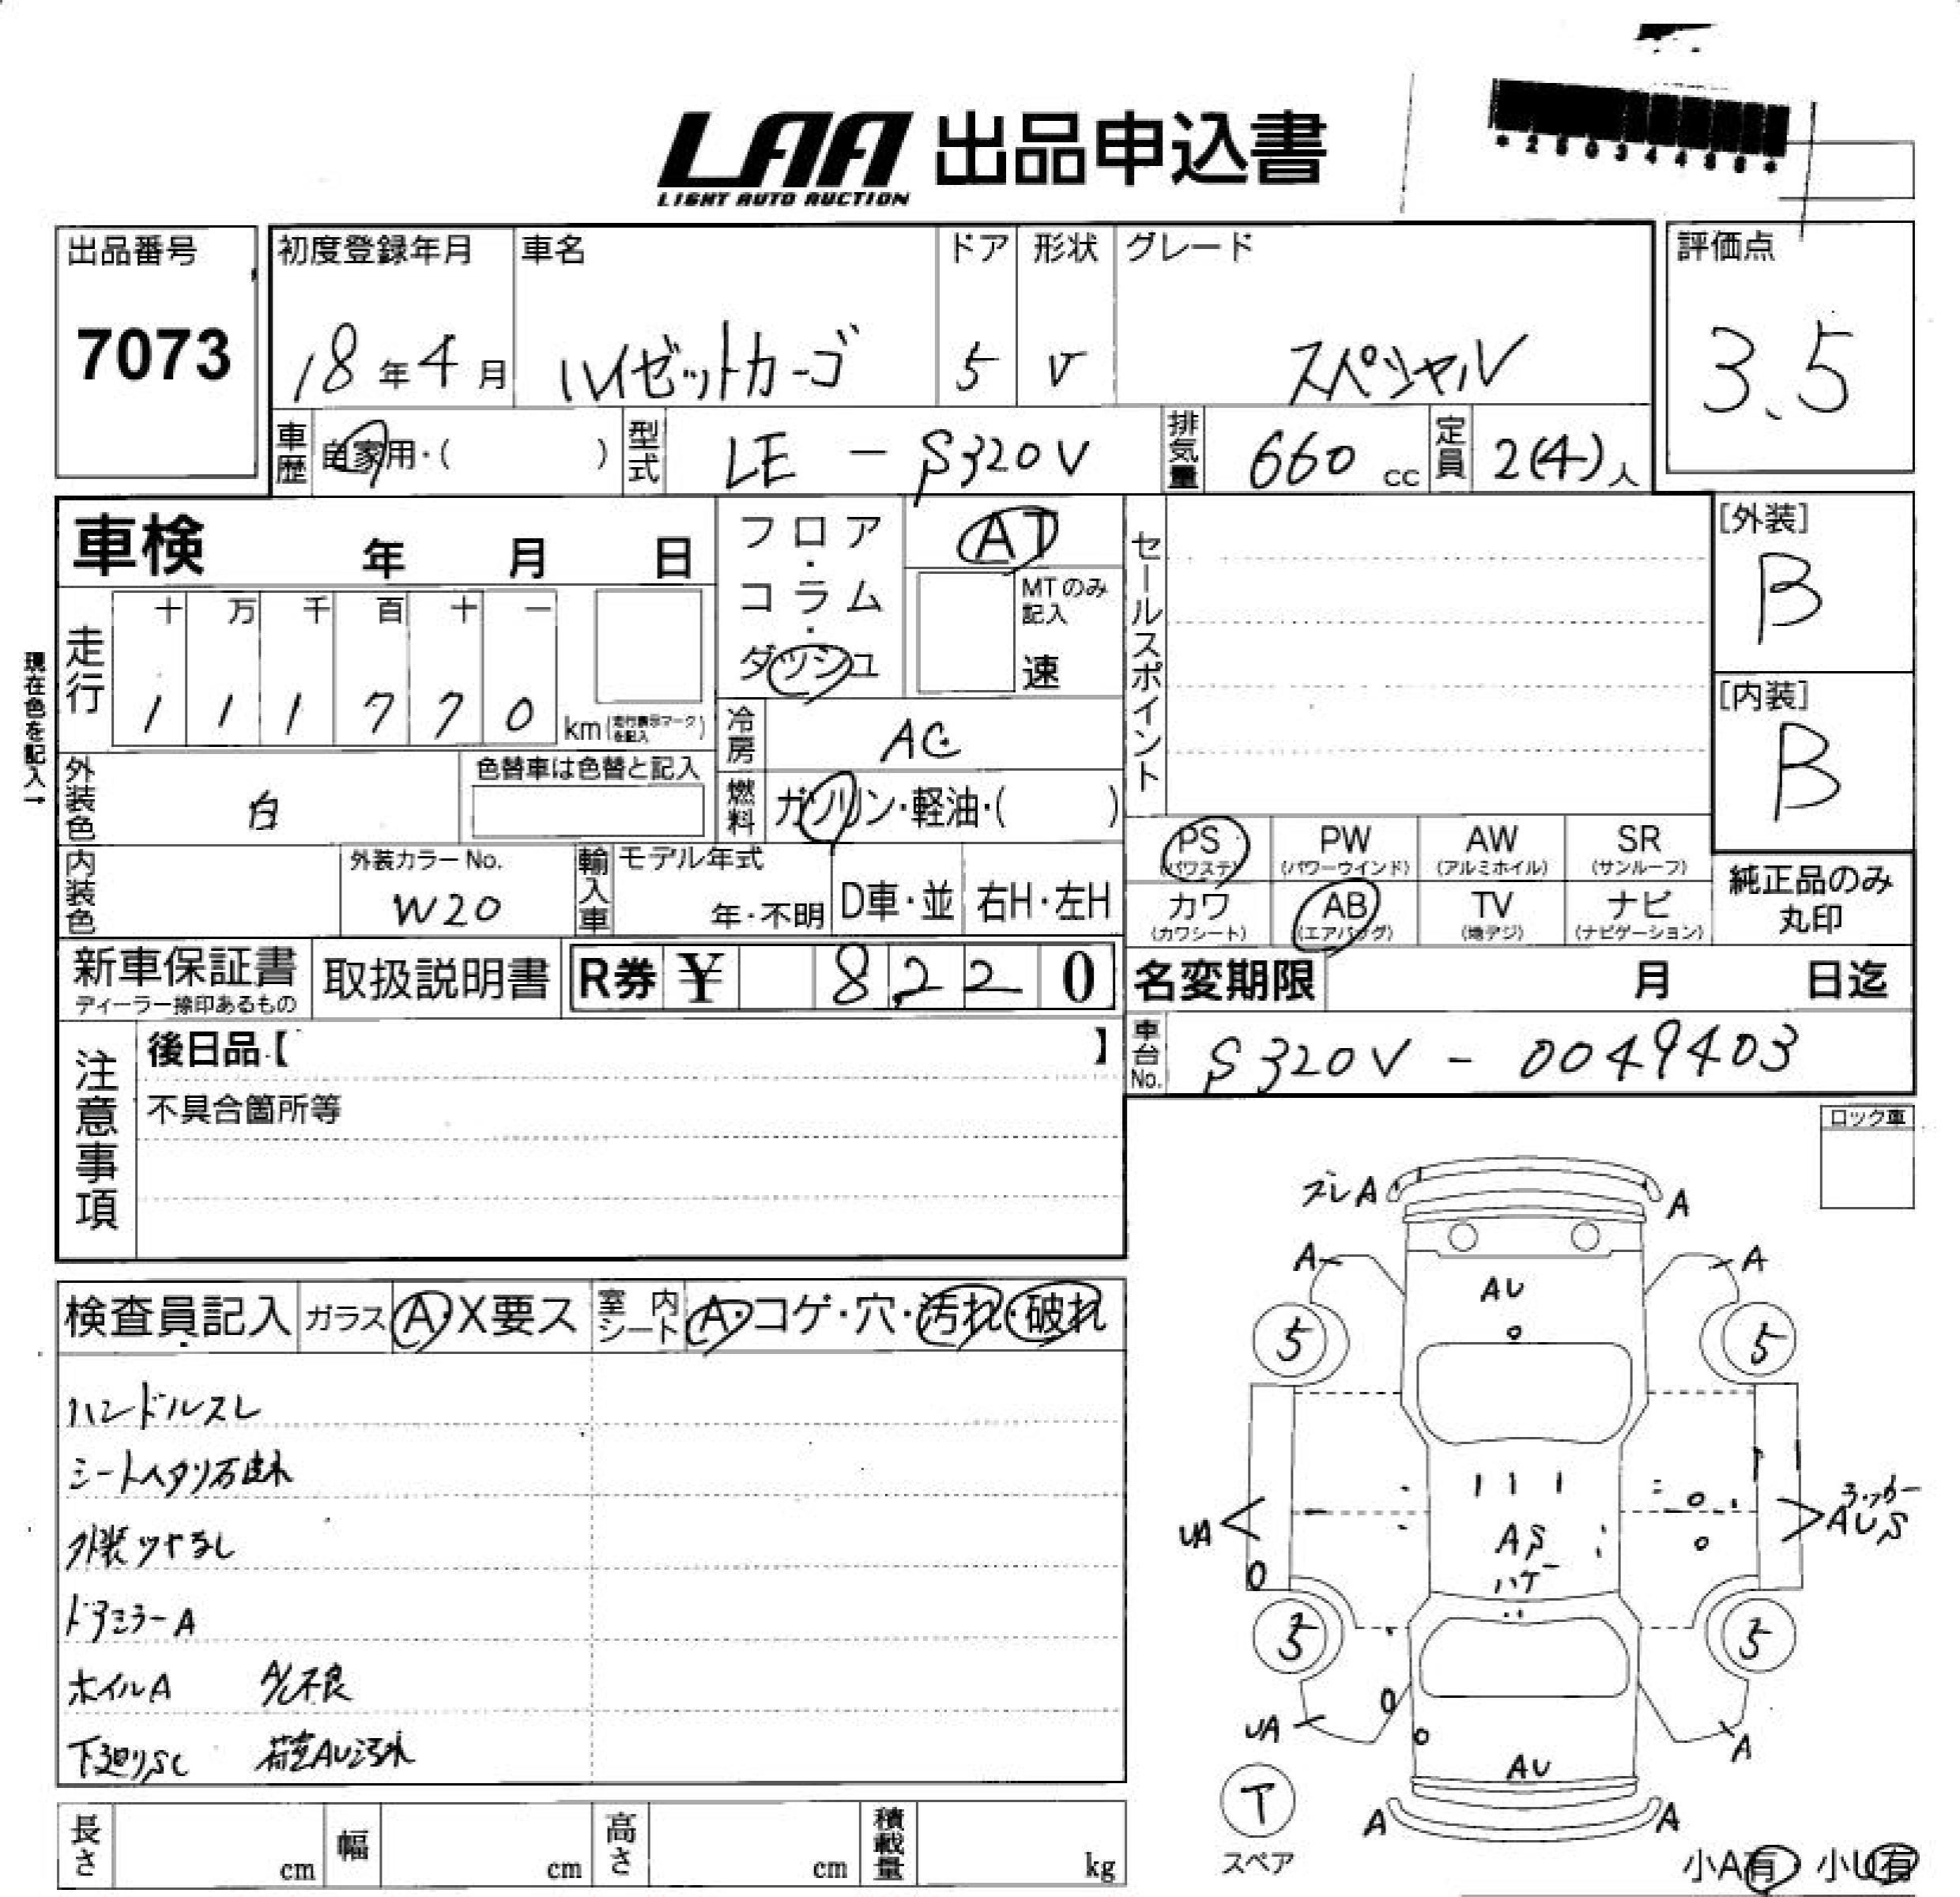 LAA 出品申込書
LIGHT AUTO AUCTION
出品番号
7073
初度登録年月
18年4月
車名
ハイゼットカーゴ
ドア
5
形状
V
グレード
スペシャル
評価点
3.5
車歴
自家用・( )
型式
LE - S320V
排気量
660 cc
定員
2(4)人
車検 年 月 日
フロア・コラム・ダッシュ
AT
MTのみ記入
速
セールスポイント
[外装]
B
[内装]
B
現在色を記入→
走行
十 万 千 百 十 一
1 1 1 7 7 0
km(走行表示マークを記入)
冷房
AC
外装色
白
色替車は色替と記入
燃料
ガソリン・軽油・( )
内装色
外装カラーNo.
W20
輸入車
モデル年式
年・不明
D車・並
右H・左H
PS
(パワステ)
PW
(パワーウインド)
AW
(アルミホイル)
SR
(サンルーフ)
カワ
(カワシート)
AB
(エアバッグ)
TV
(地デジ)
ナビ
(ナビゲーション)
純正品のみ
丸印
新車保証書
ディーラー捺印あるもの
取扱説明書
R券 ¥ 8,220
名変期限 月 日迄
車台No.
S320V - 0049403
注意事項
後日品【 】
不具合箇所等
ロック車
検査員記入
ガラス A・X要ス
室内シート A・コゲ・穴・汚れ・破れ
ハンドルスレ
シートヘタリ破れ
外装ツヤなし
ドアミラーA
ホイルA A/C不良
下廻りSC 荷室AU汚れ
ズレA
A
A
A
AU
5
5
UA
AS
ハゲ
ステッカー
AUS
5
5
UA
AU
A
A
A
ア
スペア
小A有・小U有
長さ cm
幅 cm
高さ cm
積載量 kg